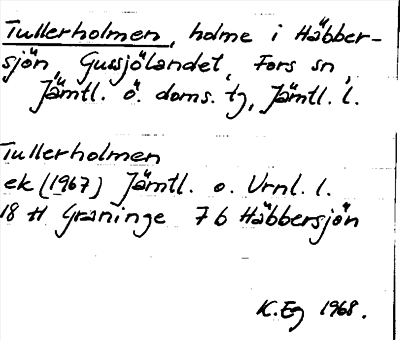 Tullerholmen, holme i Häbber-
sjön, Gussjölandet, Fors sn,
Jämtl. ö. doms. tg, Jämtl. l.
Tullerholmen
ek (1967) Jämtl. o. Vrnl. l.
18 H Graninge 7b Häbbersjön
K. Eg 1968.